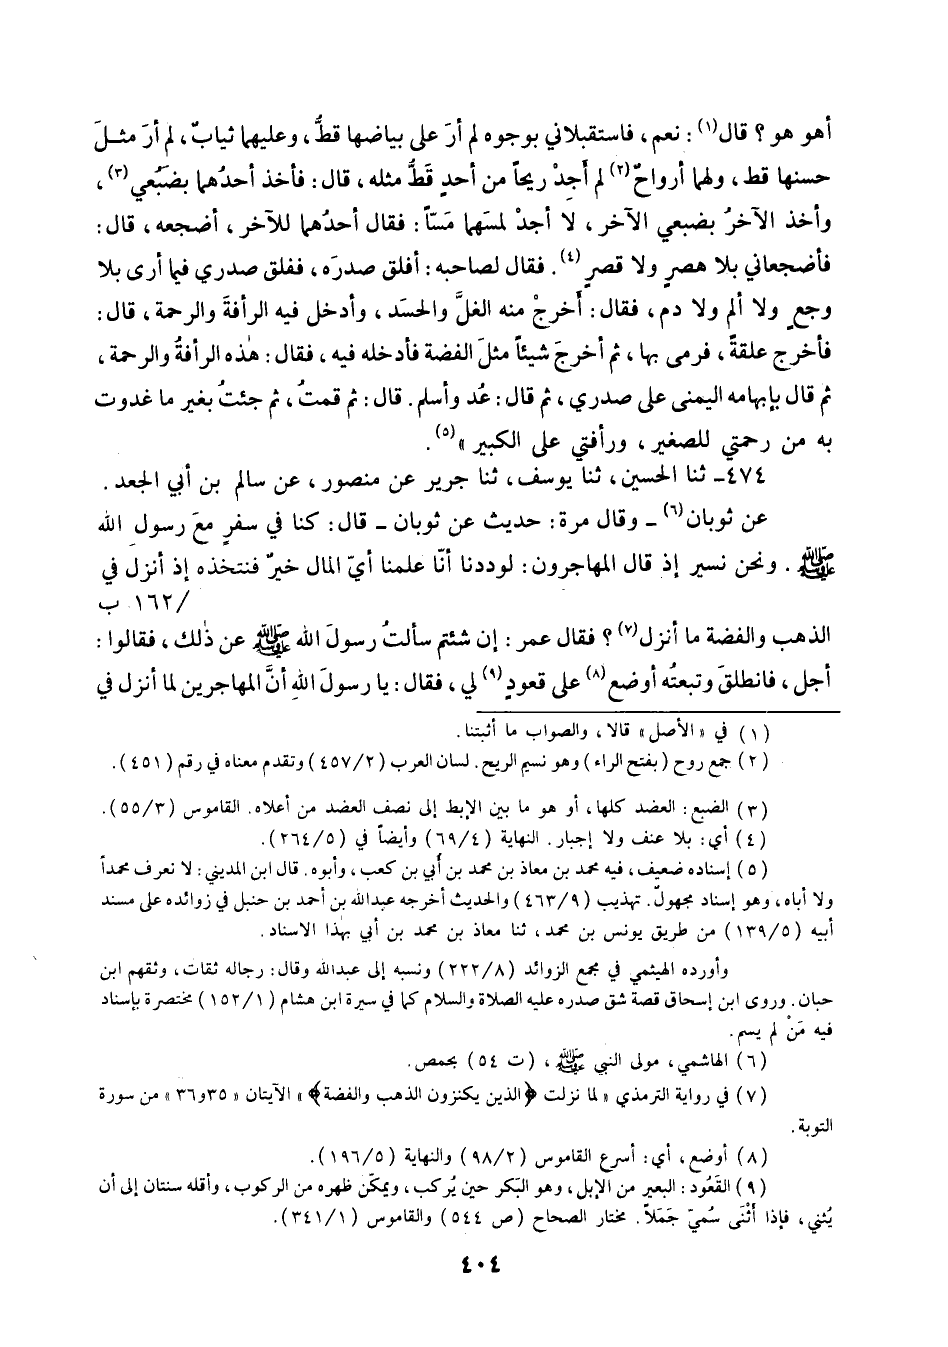 أهو هو ؟ قال(١) : نعم ، فاستقبلاني بوجوه لم أرَ على بياضها قطُّ ، وعليهما ثيابٌ ، لم أرَ مثـلَ
حسنها قط ، ولهما أرواحٌ(٢) لم أَجِدْ ريحاً من أحدٍ قَطُّ مثله ، قال : فأخذ أحدُهما بضَبُعي(٣) ،
وأخذ الآخرُ بضبعي الآخر ، لا أجدْ لمسَهما مَسّاً : فقال أحدُهما للآخر ، أضجعه ، قال :
فأضجعاني بلا هصرٍ ولا قصرٍ(٤) . فقال لصاحبه : أفلق صدرَه ، ففلق صدري فيما أرى بلا
وجعٍ ولا ألم ولا دم ، فقال : أَخرجْ منه الغلَّ والحسَد ، وأدخل فيه الرأفةَ والرحمة ، قال :
فأخرج علقةً ، فرمى بها ، ثم أخرجَ شيئاً مثلَ الفضة فأدخله فيه ، فقال : هٰذه الرأفةُ والرحمة ،
ثم قال بإبهامه اليمنى على صدري ، ثم قال : عُد وأسلم . قال : ثم قمتُ ، ثم جئتُ بغير ما غدوت
به من رحمتي للصغير ، ورأفتي على الكبير »(٥) .
٤٧٤ـ ثنا الحسين ، ثنا يوسف ، ثنا جرير عن منصور ، عن سالم بن أبي الجعد .
عن ثوبان(٦) ـ وقال مرة : حديث عن ثوبان ـ قال : كنا في سفرٍ معَ رسول الله
ﷺ . ونحن نسير إذ قال المهاجرون : لوددنا أنّا علمنا أيّ المال خيرٌ فنتخذه إذ أنزل في
/١٦٢ ب
الذهب والفضة ما أنزل(٧) ؟ فقال عمر : إن شئتم سألتُ رسولَ الله ﷺ عن ذٰلك ، فقالوا :
أجل ، فانطلقَ وتبعتُه أوضع(٨) على قعودٍ(٩) لي ، فقال : يا رسولَ اللهِ أنَّ المهاجرين لما أنزل في
(١) في « الأصل » قالا ، والصواب ما أثبتنا .
(٢) جمع روح (بفتح الراء) وهو نسيم الريح . لسان العرب (٤٥٧/٢) وتقدم معناه في رقم (٤٥١) .
(٣) الضبع : العضد كلها ، أو هو ما بين الإبط إلى نصف العضد من أعلاه . القاموس (٥٥/٣) .
(٤) أي : بلا عنف ولا إجبار . النهاية (٦٩/٤) وأيضاً في (٢٦٤/٥) .
(٥) إسناده ضعيف ، فيه محمد بن معاذ بن محمد بن أبي بن كعب ، وأبوه . قال ابن المديني : لا نعرف محمداً
ولا أباه ، وهو إسناد مجهولٌ . تهذيب (٤٦٣/٩) والحديث أخرجه عبدالله بن أحمد بن حنبل في زوائده على مسند
أبيه (١٣٩/٥) من طريق يونس بن محمد ، ثنا معاذ بن محمد بن أبي بهٰذا الاسناد .
وأورده الهيثمي في مجمع الزوائد (٢٢٢/٨) ونسبه إلى عبدالله وقال : رجاله ثقات ، وثقهم ابن
حبان . وروى ابن إسحاق قصة شق صدره عليه الصلاة والسلام كما في سيرة ابن هشام (١٥٢/١) مختصرة بإسناد
فيه مَنْ لم يسم .
(٦) الهاشمي ، مولى النبي ﷺ ، (ت ٥٤) بحمص .
(٧) في رواية الترمذي « لما نزلت ﴿الذين يكنزون الذهب والفضة﴾ » الآيتان « ٣٥و٣٦ » من سورة
التوبة .
(٨) أوضع ، أي : أسرع القاموس (٩٨/٢) والنهاية (١٩٦/٥) .
(٩) القَعُود : البعير من الإبل ، وهو البَكر حين يُركب ، ويمكّن ظهره من الركوب ، وأقله سنتان إلى أن
يُثني ، فإذا أَثْنَى سُميّ جَمَلاً . مختار الصحاح (ص ٥٤٤) والقاموس (٣٤١/١) .
٤٠٤